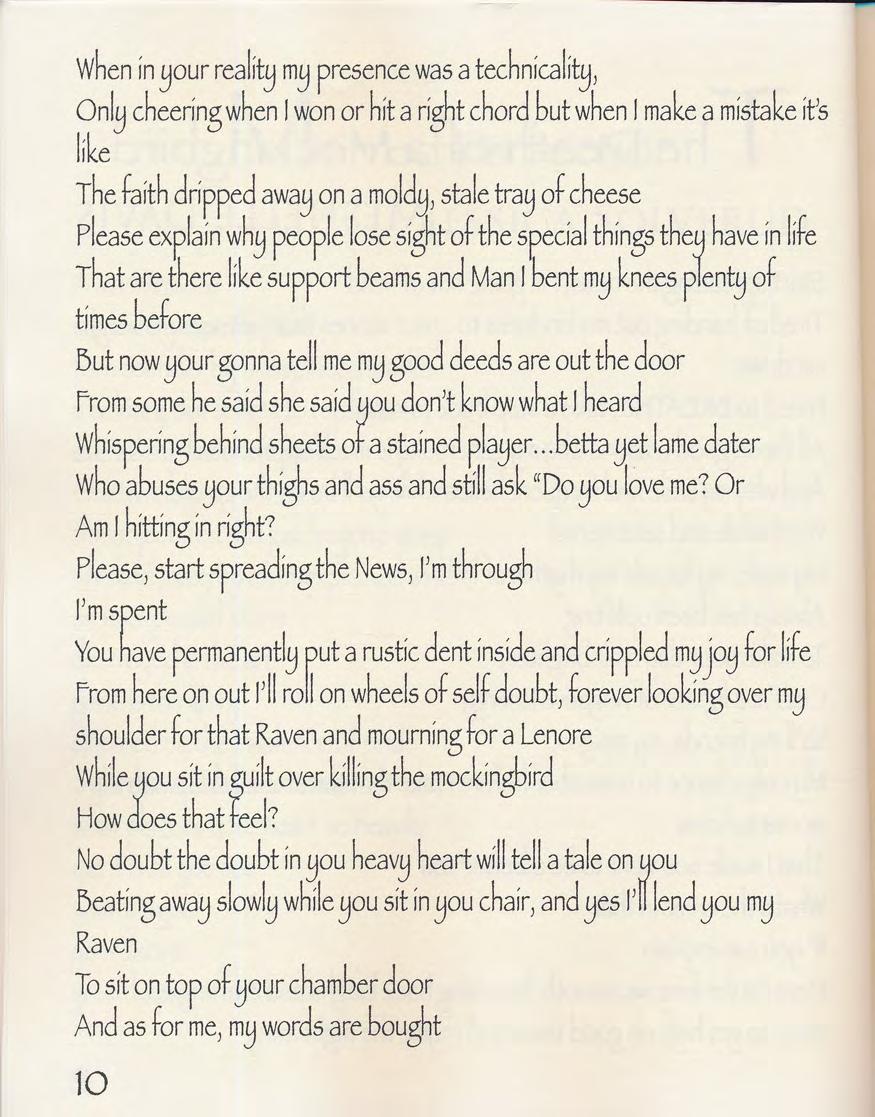 When in your reality my presence was a technicality,
Only cheering when I won or hit a right chord but when I make a mistake it's
like
The faith dripped away on a moldy, stale tray of cheese
Please explain why people lose sight of the special things they have in life
That are there like support beams and Man I bent my knees plenty of
times before
But now your gonna tell me my good deeds are out the door
From some he said she said you don't know what I heard
Whispering behind sheets of a stained player...betta yet lame dater
Who abuses your thighs and ass and still ask "Do you love me? Or
Am I hitting in right?
Please, start spreading the News, I'm through
I'm spent
You have permanently put a rustic dent inside and crippled my joy for life
From here on out I'll roll on wheels of self doubt, forever looking over my
shoulder for that Raven and mourning for a Lenore
While you sit in guilt over killing the mockingbird
How does that feel?
No doubt the doubt in you heavy heart will tell a tale on you
Beating away slowly while you sit in you chair, and yes I'll lend you my
Raven
To sit on top of your chamber door
And as for me, my words are bought
10